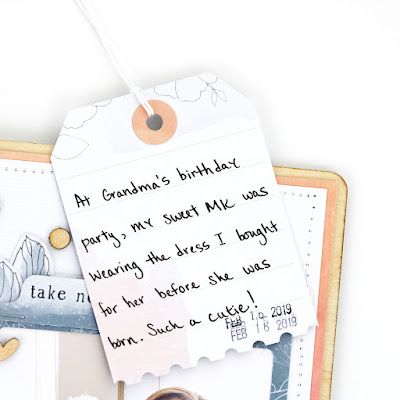 At Grandma's birthday
party, my sweet MK was
wearing the dress I bought
for her before she was
born. Such a cutie!
FEB 2019
FEB 16 2019
take